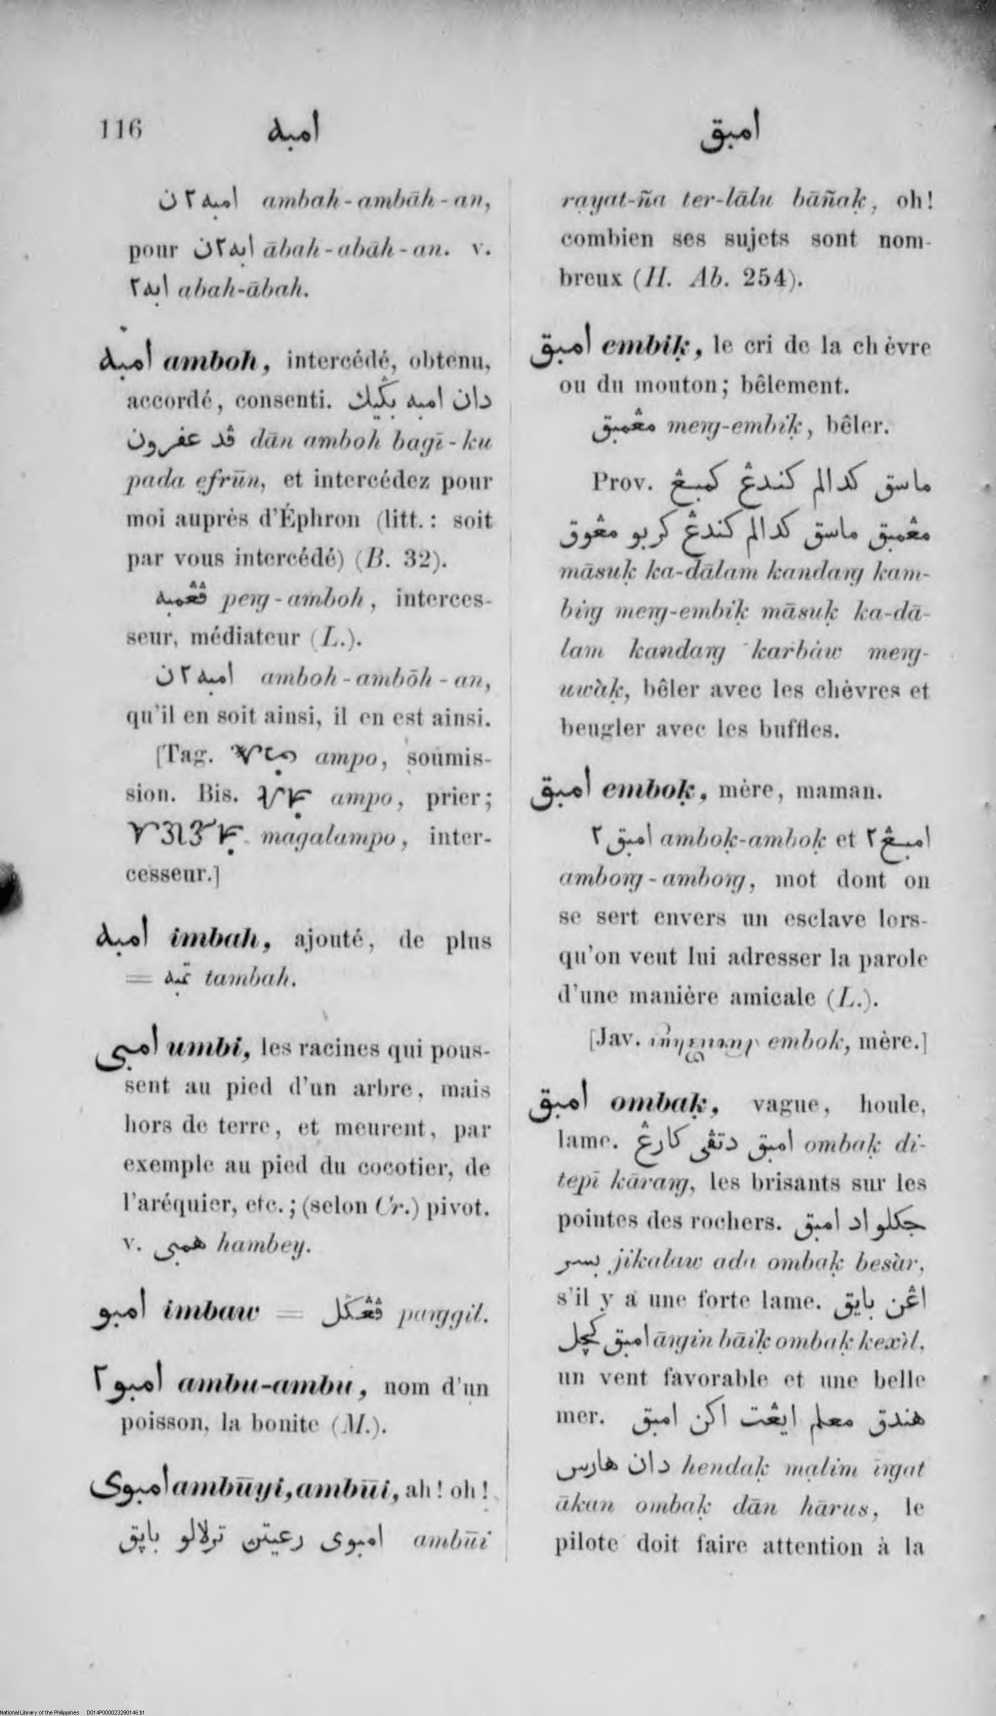 116
امبه
امبق
امبه ٢ ن ambah-ambāh-an,
pour ابه ٢ ن ābah-abāh-an. v.
ابه ٢ abah-ābah.
امبه amboh, intercédé, obtenu,
accordé, consenti. دان امبه بڬيك
ڤد عفرون dān amboh bagī-ku
pada efrūn, et intercédez pour
moi auprès d'Éphron (litt.: soit
par vous intercédé) (B. 32).
ڤڠمبه peng-amboh, interces-
seur, médiateur (L.).
امبه ٢ ن amboh-ambōh-an,
qu'il en soit ainsi, il en est ainsi.
[Tag. ampo, soumis-
sion. Bis. ampo, prier;
magalampo, inter-
cesseur.]
امبه imbah, ajouté, de plus
= تمبه tambah.
امبى umbi, les racines qui pous-
sent au pied d'un arbre, mais
hors de terre, et meurent, par
exemple au pied du cocotier, de
l'aréquier, etc.; (selon Cr.) pivot.
v. همبى hambey.
امبو imbaw = ڤڠݢل panggil.
امبو ٢ ambu-ambu, nom d'un
poisson, la bonite (M.).
امبوى ambūyi, ambūi, ah! oh!
امبوى رعيتن ترلالو باڽق ambūi
rayat-ña ter-lālu bāñaḳ, oh!
combien ses sujets sont nom-
breux (H. Ab. 254).
امبق embiḳ, le cri de la chèvre
ou du mouton; bêlement.
مڠمبق meng-embiḳ, bêler.
Prov. ماسق كدالم كندڠ كمبڠ
مڠمبق ماسق كدالم كندڠ كربو مڠوق
māsuḳ ka-dālam kandang kam-
bing meng-embiḳ māsuḳ ka-dā-
lam kandang karbàw meng-
uwàḳ, bêler avec les chèvres et
beugler avec les buffles.
امبق emboḳ, mère, maman.
امبق ٢ amboḳ-amboḳ et امبڠ ٢
ambong-ambong, mot dont on
se sert envers un esclave lors-
qu'on veut lui adresser la parole
d'une manière amicale (L.).
[Jav. embok, mère.]
امبق ombaḳ, vague, houle,
lame. امبق دتڤى كارڠ ombaḳ di-
tepī kārang, les brisants sur les
pointes des rochers. جكلو اد امبق
بسر jikalaw ada ombaḳ besàr,
s'il y a une forte lame. اڠن بايق
امبق كچل āngin bāiḳ ombaḳ kexìl,
un vent favorable et une belle
mer. هندق معلم ايڠت اكن امبق
دان هارس hendaḳ malim ingat
ākan ombaḳ dān hārus, le
pilote doit faire attention à la
National Library of the Philippines